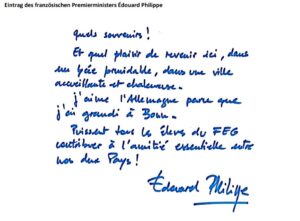 Eintrag des französischen Premierministers Édouard Philippe
quels souvenirs !
Et quel plaisir de revenir ici, dans
un lycée formidable, dans une ville
accueillante et chaleureuse.
j'aime l'Allemagne parce que
j'ai grandi à Bonn.
Puissent tous les élèves du FEG
contribuer à l'amitié essentielle entre
nos deux Pays !
Édouard Philippe